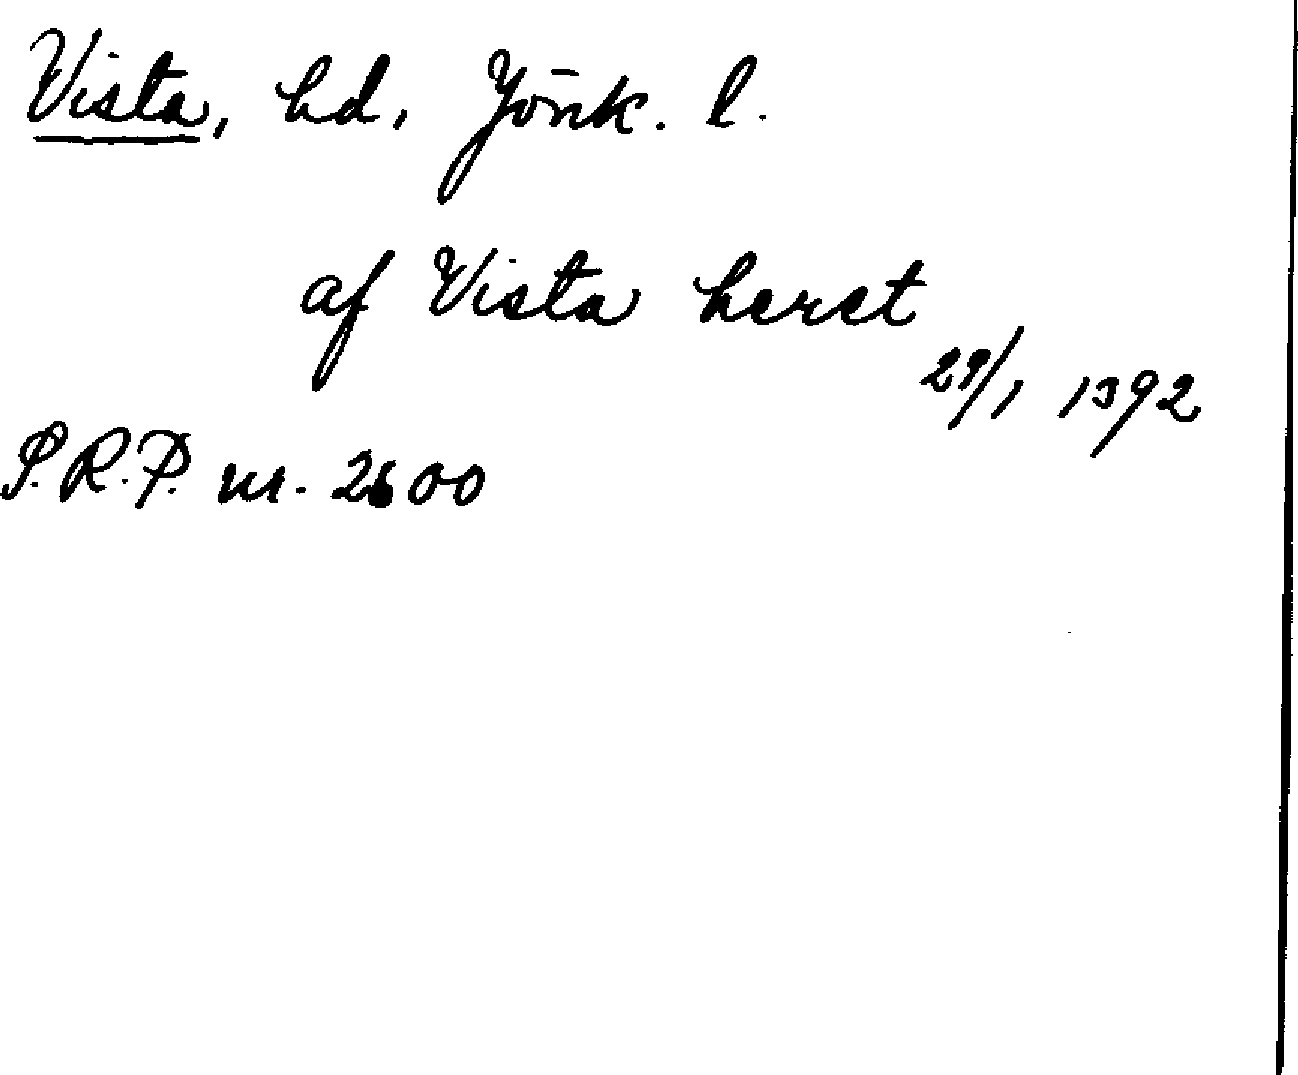 Vista, hd, Jönk. l.
af Vista heret
29/1 1392
S.R.P. nr. 2600